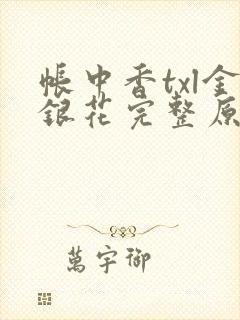 帳中香txl金
銀花完整原
萬宇御